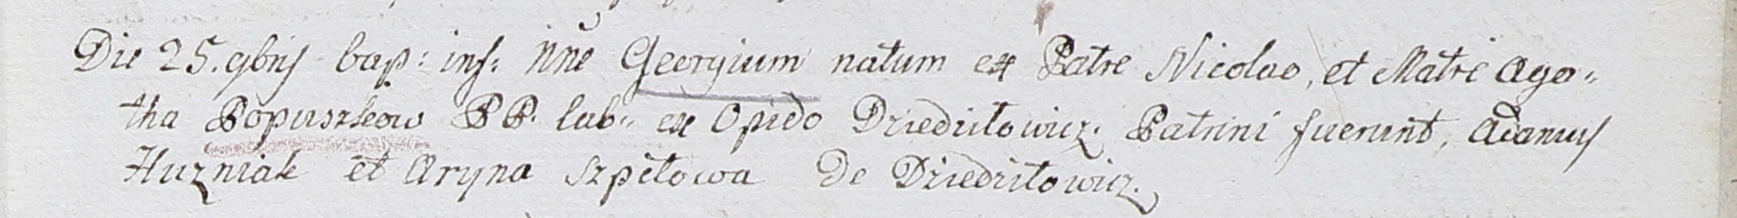 Die 25. 9bris bap: inf: Nne Georgium natum ex Patre Nicolao, et Matre Aga-
tha Popuszkow PP. lab: ex Opido Dziedziłowicz. Patrini fuerunt, Adamus
Huzniak et Aryna Szpetowa de Dziedziłowicz.